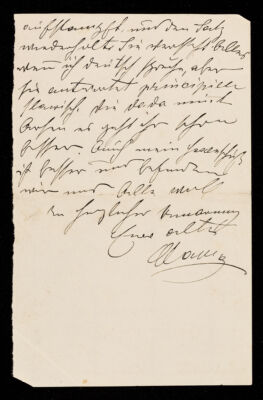 aufstampft, und den Satz
wiederholte. Sie versteht Alles
wenn ich deutsch spreche, aber
sie antwortet principiell
slavisch. Die dada meint
es geht ihr schon
besser. Auch mein
ist besser und befinden
wir uns Alle wol
In herzlicher Umarmung
Euer alter